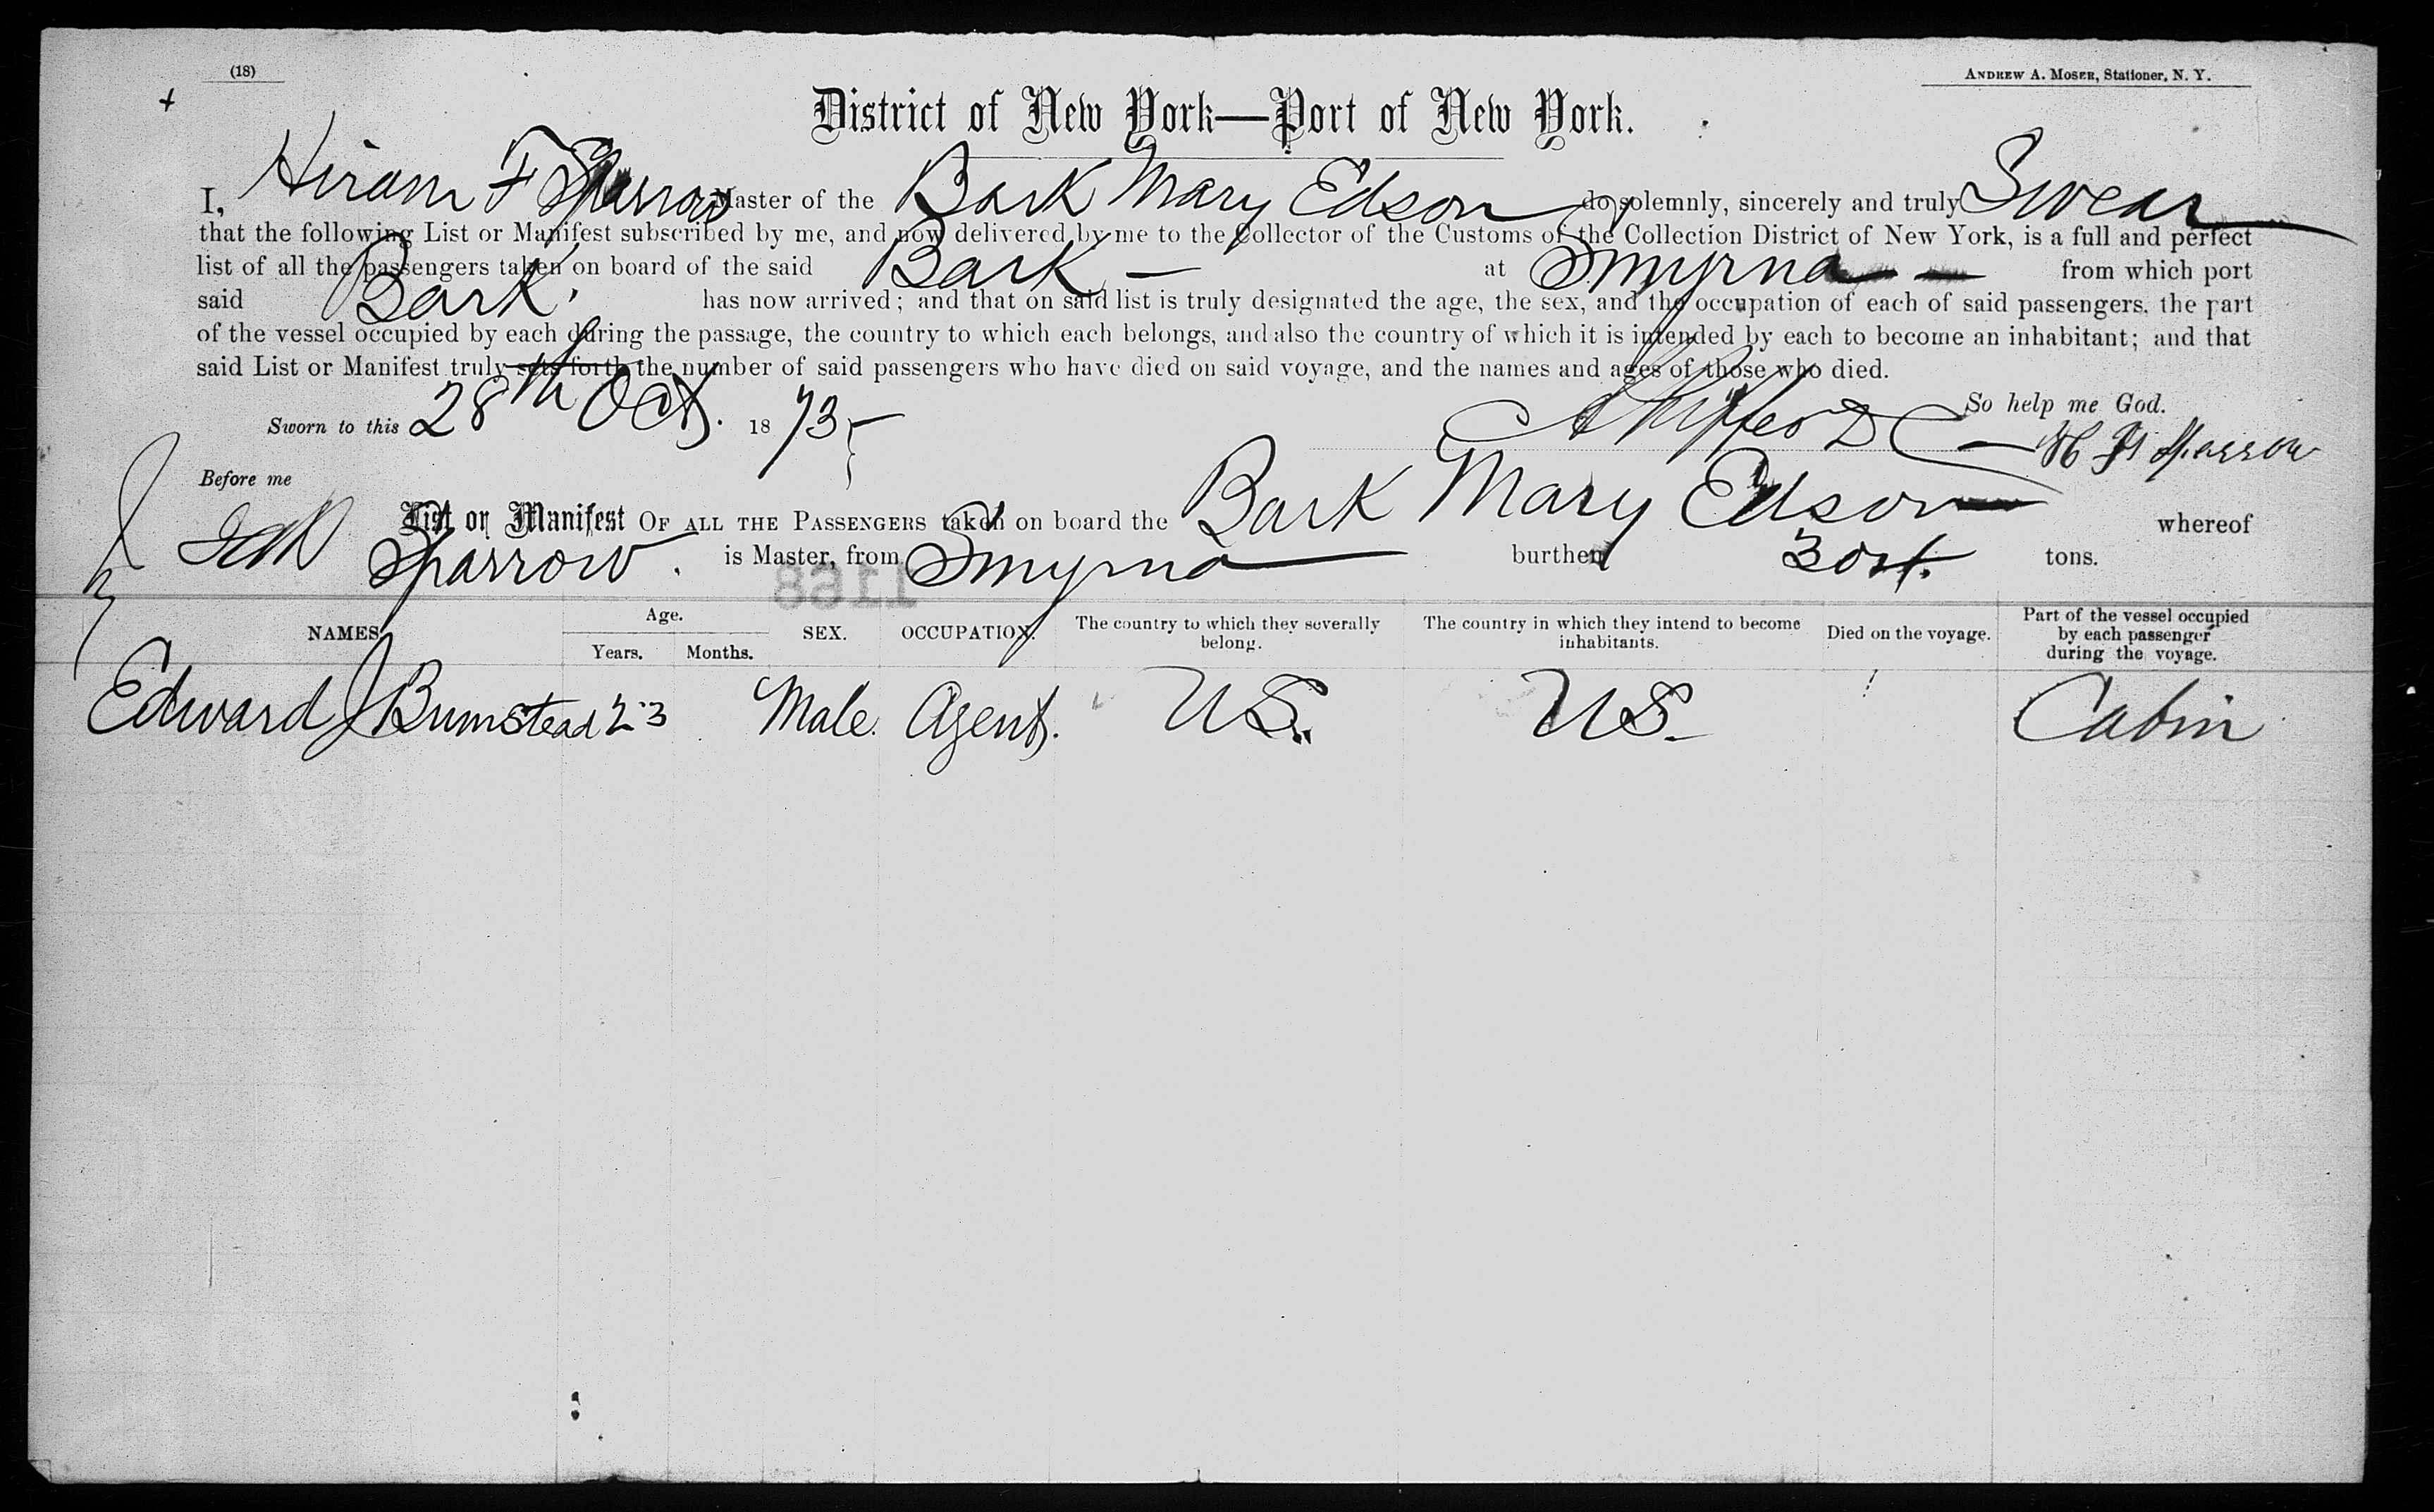 (18)
ANDREW A. MOSER, Stationer, N. Y.
District of New York—Port of New York.
I, Hiram F Sparrow Master of the Bark Mary Edson do solemnly, sincerely and truly Swear
that the following List or Manifest subscribed by me, and now delivered by me to the Collector of the Customs of the Collection District of New York, is a full and perfect
list of all the passengers taken on board of the said Bark — at Smyrna — from which port
said Bark, has now arrived; and that on said list is truly designated the age, the sex, and the occupation of each of said passengers, the part
of the vessel occupied by each during the passage, the country to which each belongs, and also the country of which it is intended by each to become an inhabitant; and that
said List or Manifest truly sets forth the number of said passengers who have died on said voyage, and the names and ages of those who died.
So help me God.
Sworn to this 28th Oct. 1873
H F Sparrow
Before me
List or Manifest OF ALL THE PASSENGERS taken on board the Bark Mary Edson whereof
Sparrow. is Master, from Smyrna burthen tons.
1168
NAMES. Age. Years. Months. SEX. OCCUPATION. The country to which they severally belong. The country in which they intend to become inhabitants. Died on the voyage. Part of the vessel occupied by each passenger during the voyage.
Edward J Bumstead 23 Male. Agent. U S. U S. Cabin